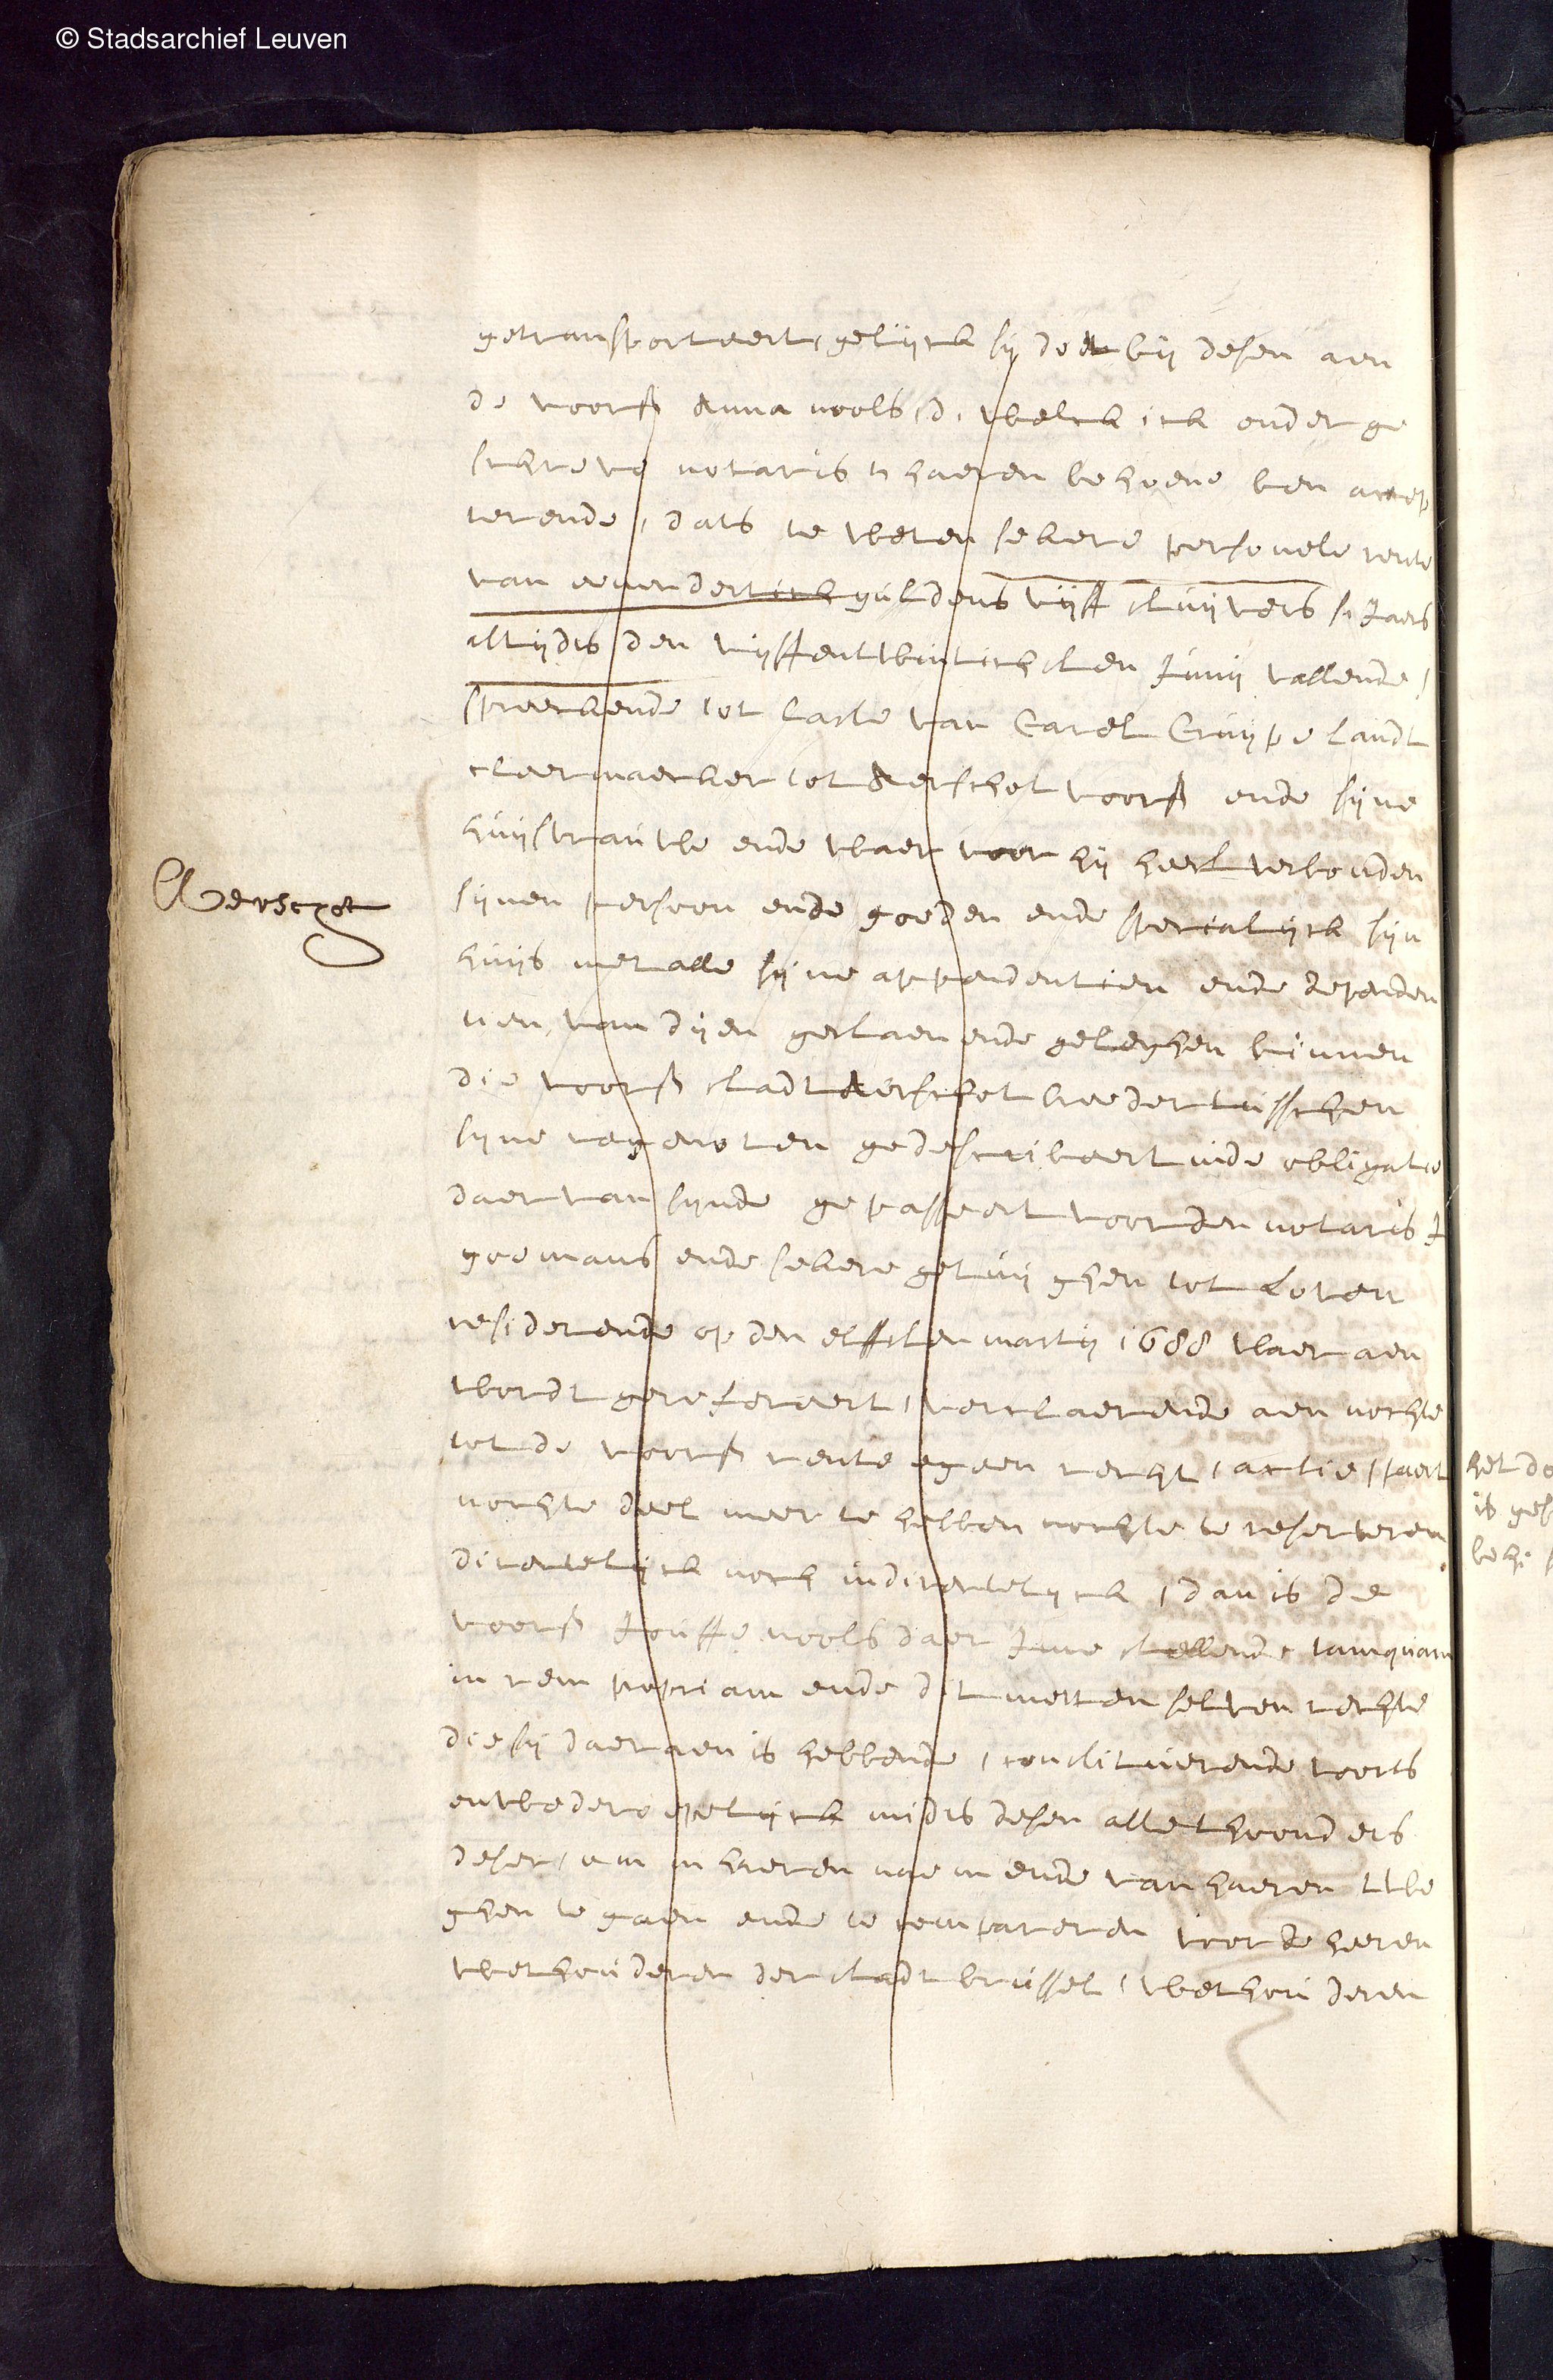 © Stadsarchief Leuven
getransporteert, gelijck sij doet bij desen aen
de voors Anna nools, d. welck ick onderge
schreve notaris t haeren behoeve ben accep
terende, dats te weten sekere personele rente
van eenendertich guldens vijff stuijvers sjaers
altijdts den vijffentwintichsten junij vallende,
spreeckende tot laste van Carel Cruijpelandt
cleermaecker tot Aerschot voors ende sijne
huijsvrauwe ende waer voor hij heeft verbonden
Aerschot
sijnen persoon ende goeden ende specialijck sijn
huijs met alle sijne appendentien ende dependen
tien, van dijen gestaen ende geleghen binnen
die voors stadt Aerschot breeder tusschen
sijne regenoten gedescribeert inde obligatie
daer van sijnde gepasseert voor den notaris J
goemans ende sekere getuijghen tot Loven
residerende op den elffsten martij 1688 waer aen
wordt gerefereert, verclaerende aen nochte
tot de voors rente egeen recht, actie, paert
nochte deel meer te hebben nochte te reserveren
directelijck noch indirectelijck, dan is de
voors jouffe nools daer inne stellende tamquam
in rem propriam ende dit metten selven rechte
die sij daer aen is hebbende, constituerende voorts
onwederoepelijck midts desen alle thoonders
deser, om in haeren naem ende van haeren twe
ghen te gaen ende te compareren voor de heeren
wethouderen der stadt brussel, wethouderen
het do
is gep
behe